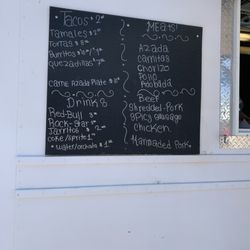 Tacos $2
Tamales $
Tortas $
Burritos
Quezadillas
Carne Azada Plate $
Drinks
Red-Bull $
Rock-Star $
Jarritos $2
Coke/Sprite 1
Water/orchata $1
Meats!
Azada
Carnitas
Chorizo
Pollo
Adobada
Beef
Shredded-Pork
Spicy Sausage
Chicken
Marinaded Pork